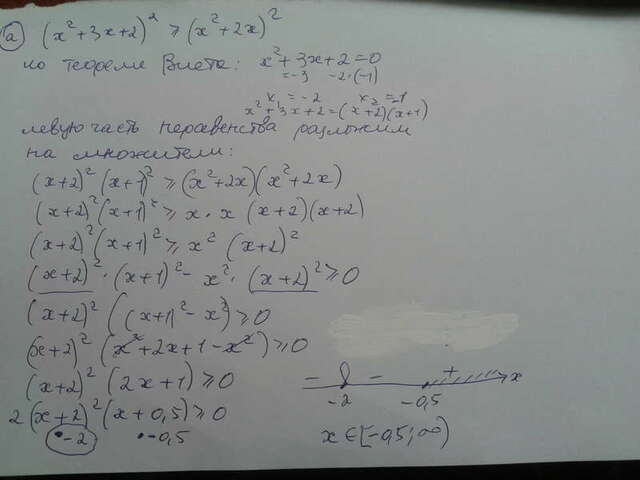 а) (x²+3x+2)² ≥ (x²+2x)²
по теореме Виета: x²+3x+2=0
=-3 -2·(-1)
x₁ = -2 x₂ = -1
x²+3x+2=(x+2)(x+1)
левую часть неравенства разложим
на множители:
(x+2)² (x+1)² ≥ (x²+2x)(x²+2x)
(x+2)² (x+1)² ≥ x · x (x+2)(x+2)
(x+2)² (x+1)² ≥ x² (x+2)²
(x+2)² · (x+1)² - x² · (x+2)² ≥ 0
(x+2)² ((x+1)² - x²) ≥ 0
(x+2)² (x²+2x+1-x²) ≥ 0
(x+2)² (2x+1) ≥ 0
2(x+2)² (x+0,5) ≥ 0
•-2 •-0,5
- - + x
-2 -0,5
x ∈ [-0,5; ∞)